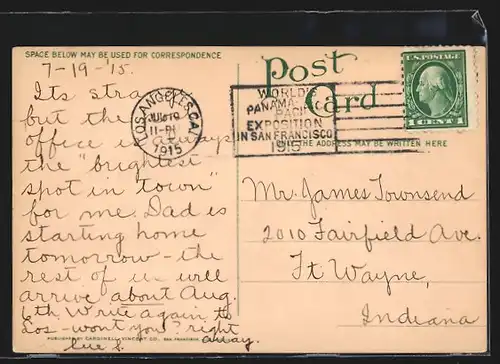 SPACE BELOW MAY BE USED FOR CORRESPONDENCE
7-19-'15.
Its strange
but the
office is always
the "brightest
spot in town"
for me. Dad is
starting home
tomorrow - the
rest of us will
arrive about Aug.
6th. Write again to
Los - won't you? right
away.
Sue
PUBLISHED BY CARDINELL-VINCENT CO., SAN FRANCISCO
Post
Card
LOS ANGELES, CAL.
JUL 19
11-PM
1915
WORLD'S
PANAMA
PACIFIC
EXPOSITION
IN SAN FRANCISCO
1915
U.S. POSTAGE
1 CENT 1
ONLY THE ADDRESS MAY BE WRITTEN HERE
Mr. James Townsend
2010 Fairfield Ave.
Ft Wayne,
Indiana